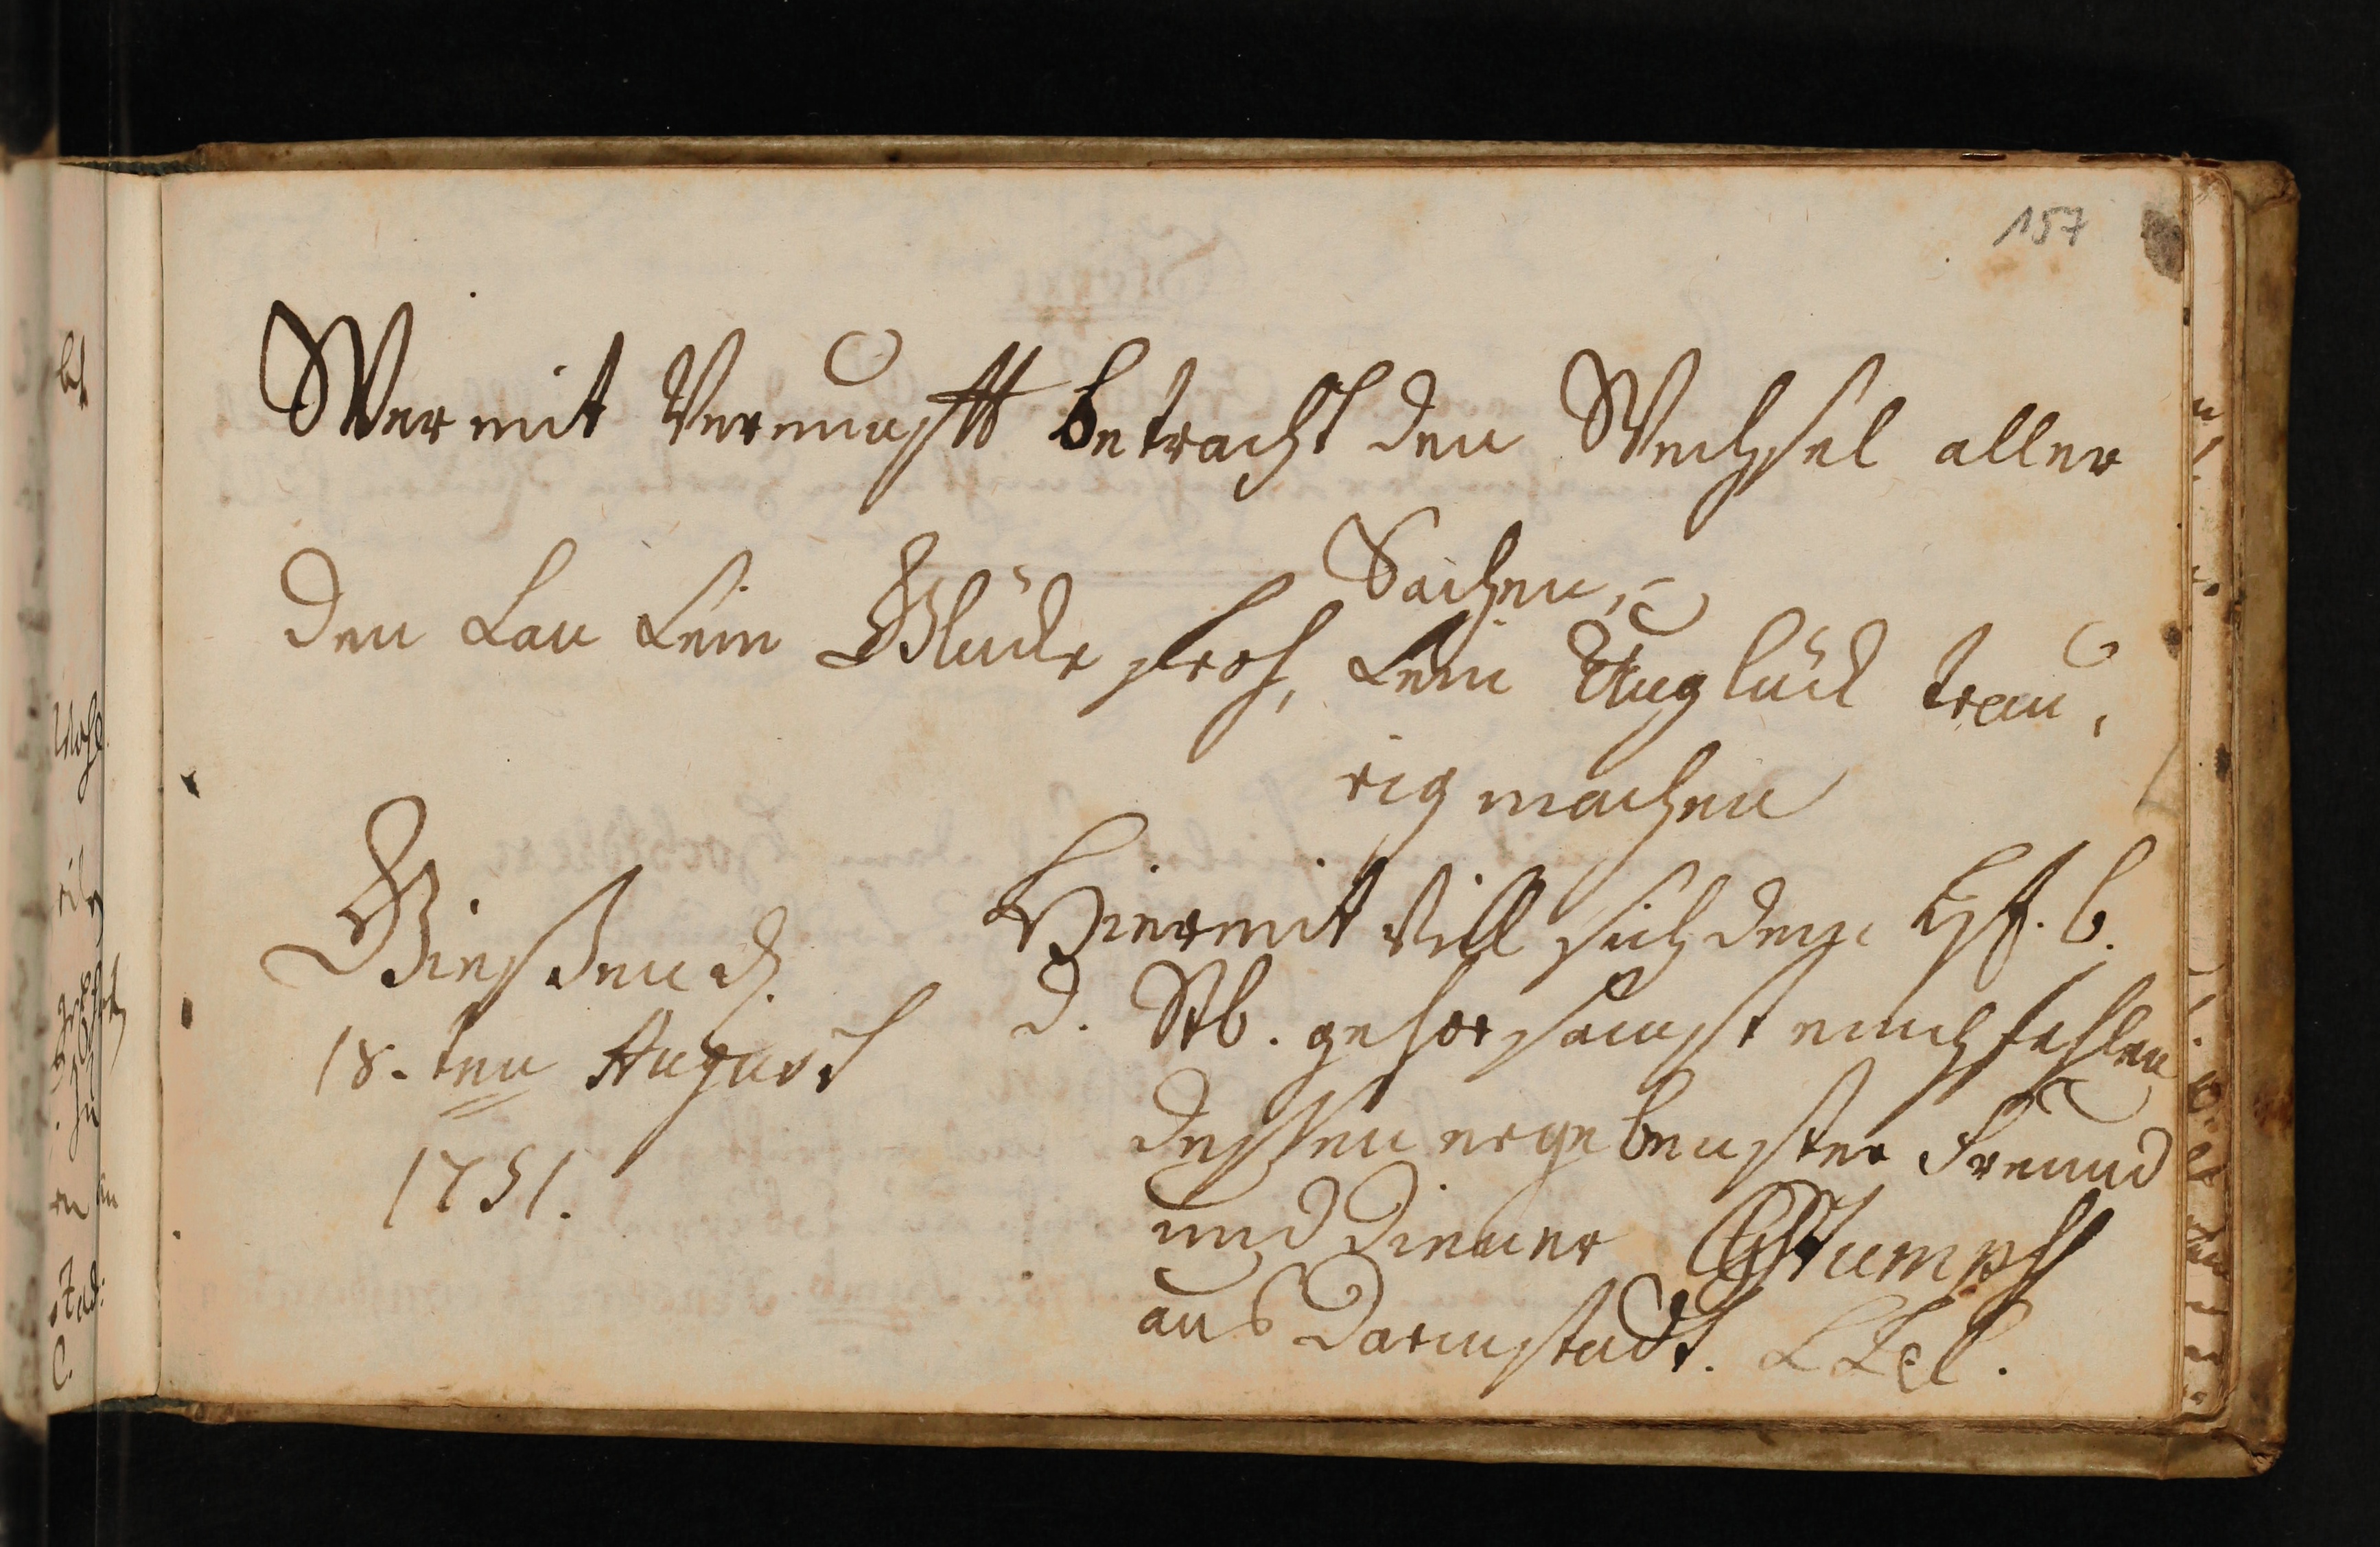 157
Wer mit Vernunfft betracht den Wechsel aller
Sachen,
den kan kein Glücke froh, kein Unglück trau,
rig machen
Giessen d.
18. ten August
1751.
Hiermit will sich dem H. b.
d. Stb. gehorsamst empfehlen
dessen ergebenster Freund
und Diener Stumpff
aus Darmstadt.